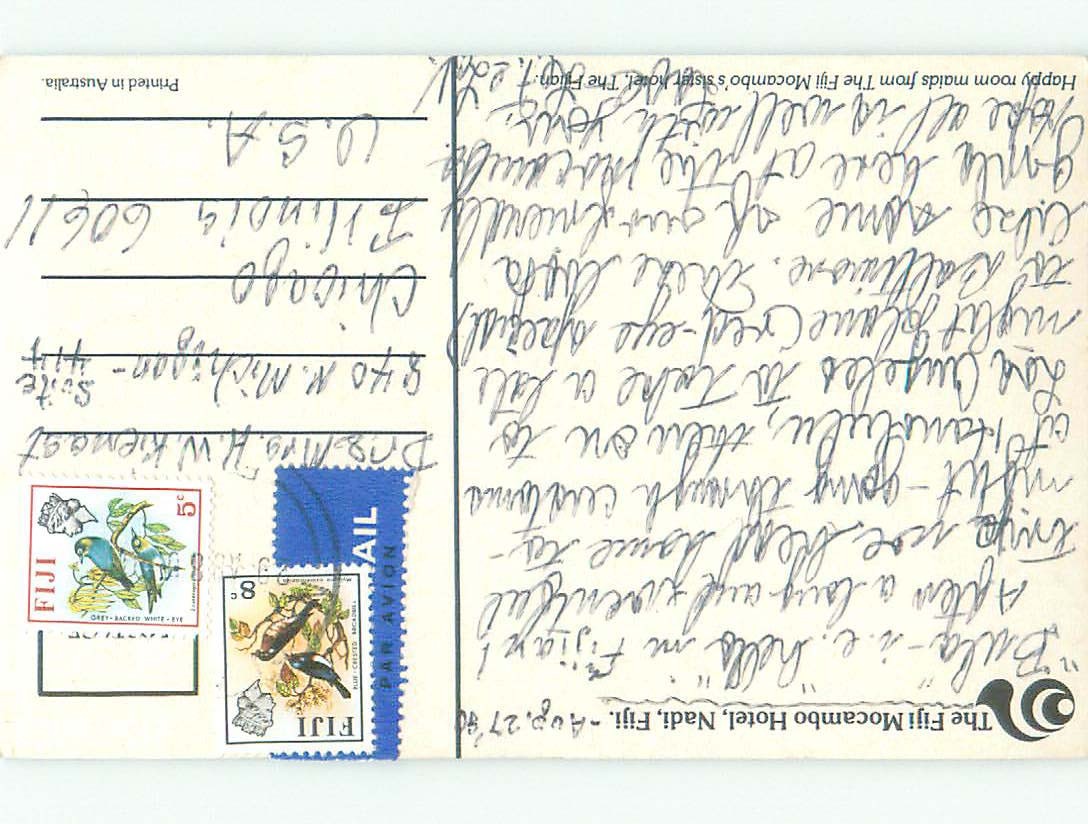 The Fiji Mocambo Hotel, Nadi, Fiji. - Aug. 27
"Bula" - i.e. "hello" in Fijian!
After a long and eventful
trip we head home to-
night - going through customs
at Honolulu, then on to
Los Angeles to take a late
night plane (red-eye special)
to Baltimore. These look
like some of our friendly
girls here at the Mocambo.
Hope all is well with you.
Happy room maids from The Fiji Mocambo's sister hotel, The Fijian.
FIJI
8c
BLUE-CRESTED BROADBILL
AIL
PAR AVION
FIJI
5c
GREY-BACKED WHITE-EYE
Dr & Mrs. H. W. Kienast
840 N. Michigan -
Suite
414
Chicago
Illinois 60611
U.S.A.
Printed in Australia.